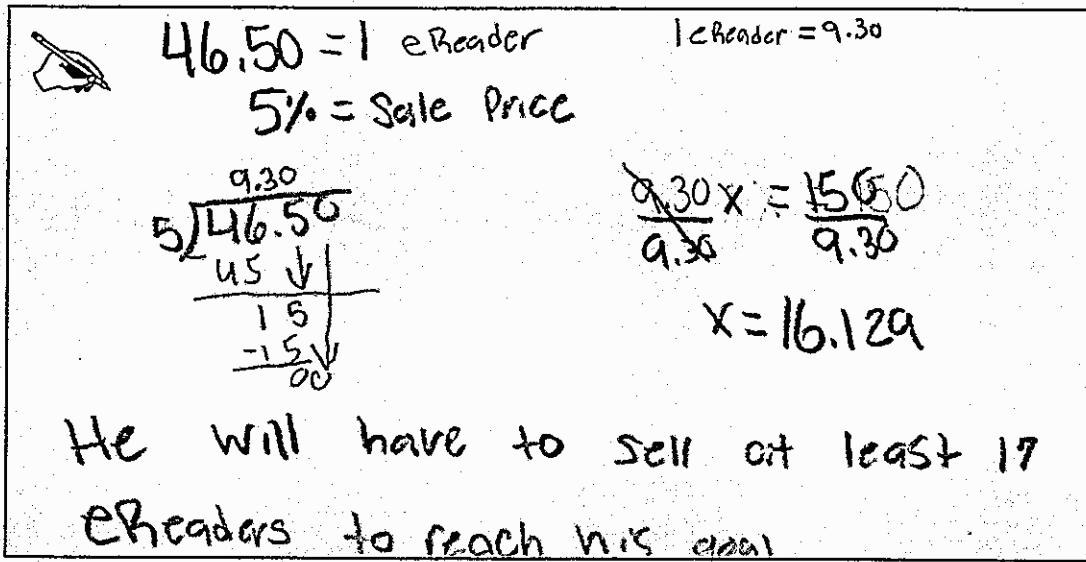 46.50 = 1 eReader
1 eReader = 9.30
5% = Sale Price
9.30
5 46.50
45
15
-15
00
9.30x =
9.30 9.30
x = 16.129
He will have to sell at least 17
eReaders to reach his goal